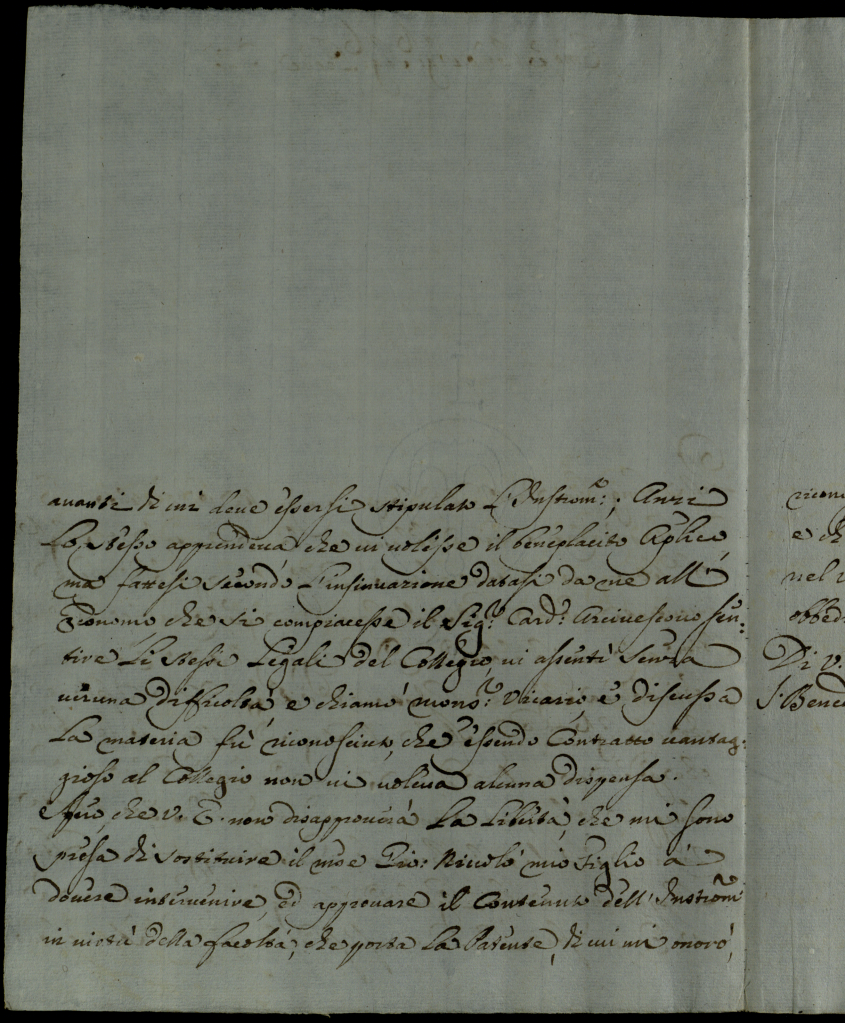 avanti di cui deve essersi stipulato l'Instrom.; Anzi
Lo stesso apprendeva che vi volesse il beneplacito Aplico,
ma fattesi secondo l'insinuazione datasi da me all'
Economo che si compiacesse il Sig.r Card.l Arcivescovo sen:
tire Li stessi Legali del Collegio, vi assentì senza
veruna difficoltà, e chiamò mons.r Vicario, e discussa
La materia fù riconosciuto, che essendo Contratto vantag:
gioso al Collegio non vi voleva alcuna dispensa.
Spero, che V. E. non disapproverà La Libertà, che mi sono
presa di sostituire il Gio: Niccolò mio Figlio à
dovere intervenire, ed approvare il Contenuto dell'Instrom
in virtù della facoltà, che porta La Patente, di cui mi onorò,
ricono
e ch
nel
obbed
Di V.
S. Bened